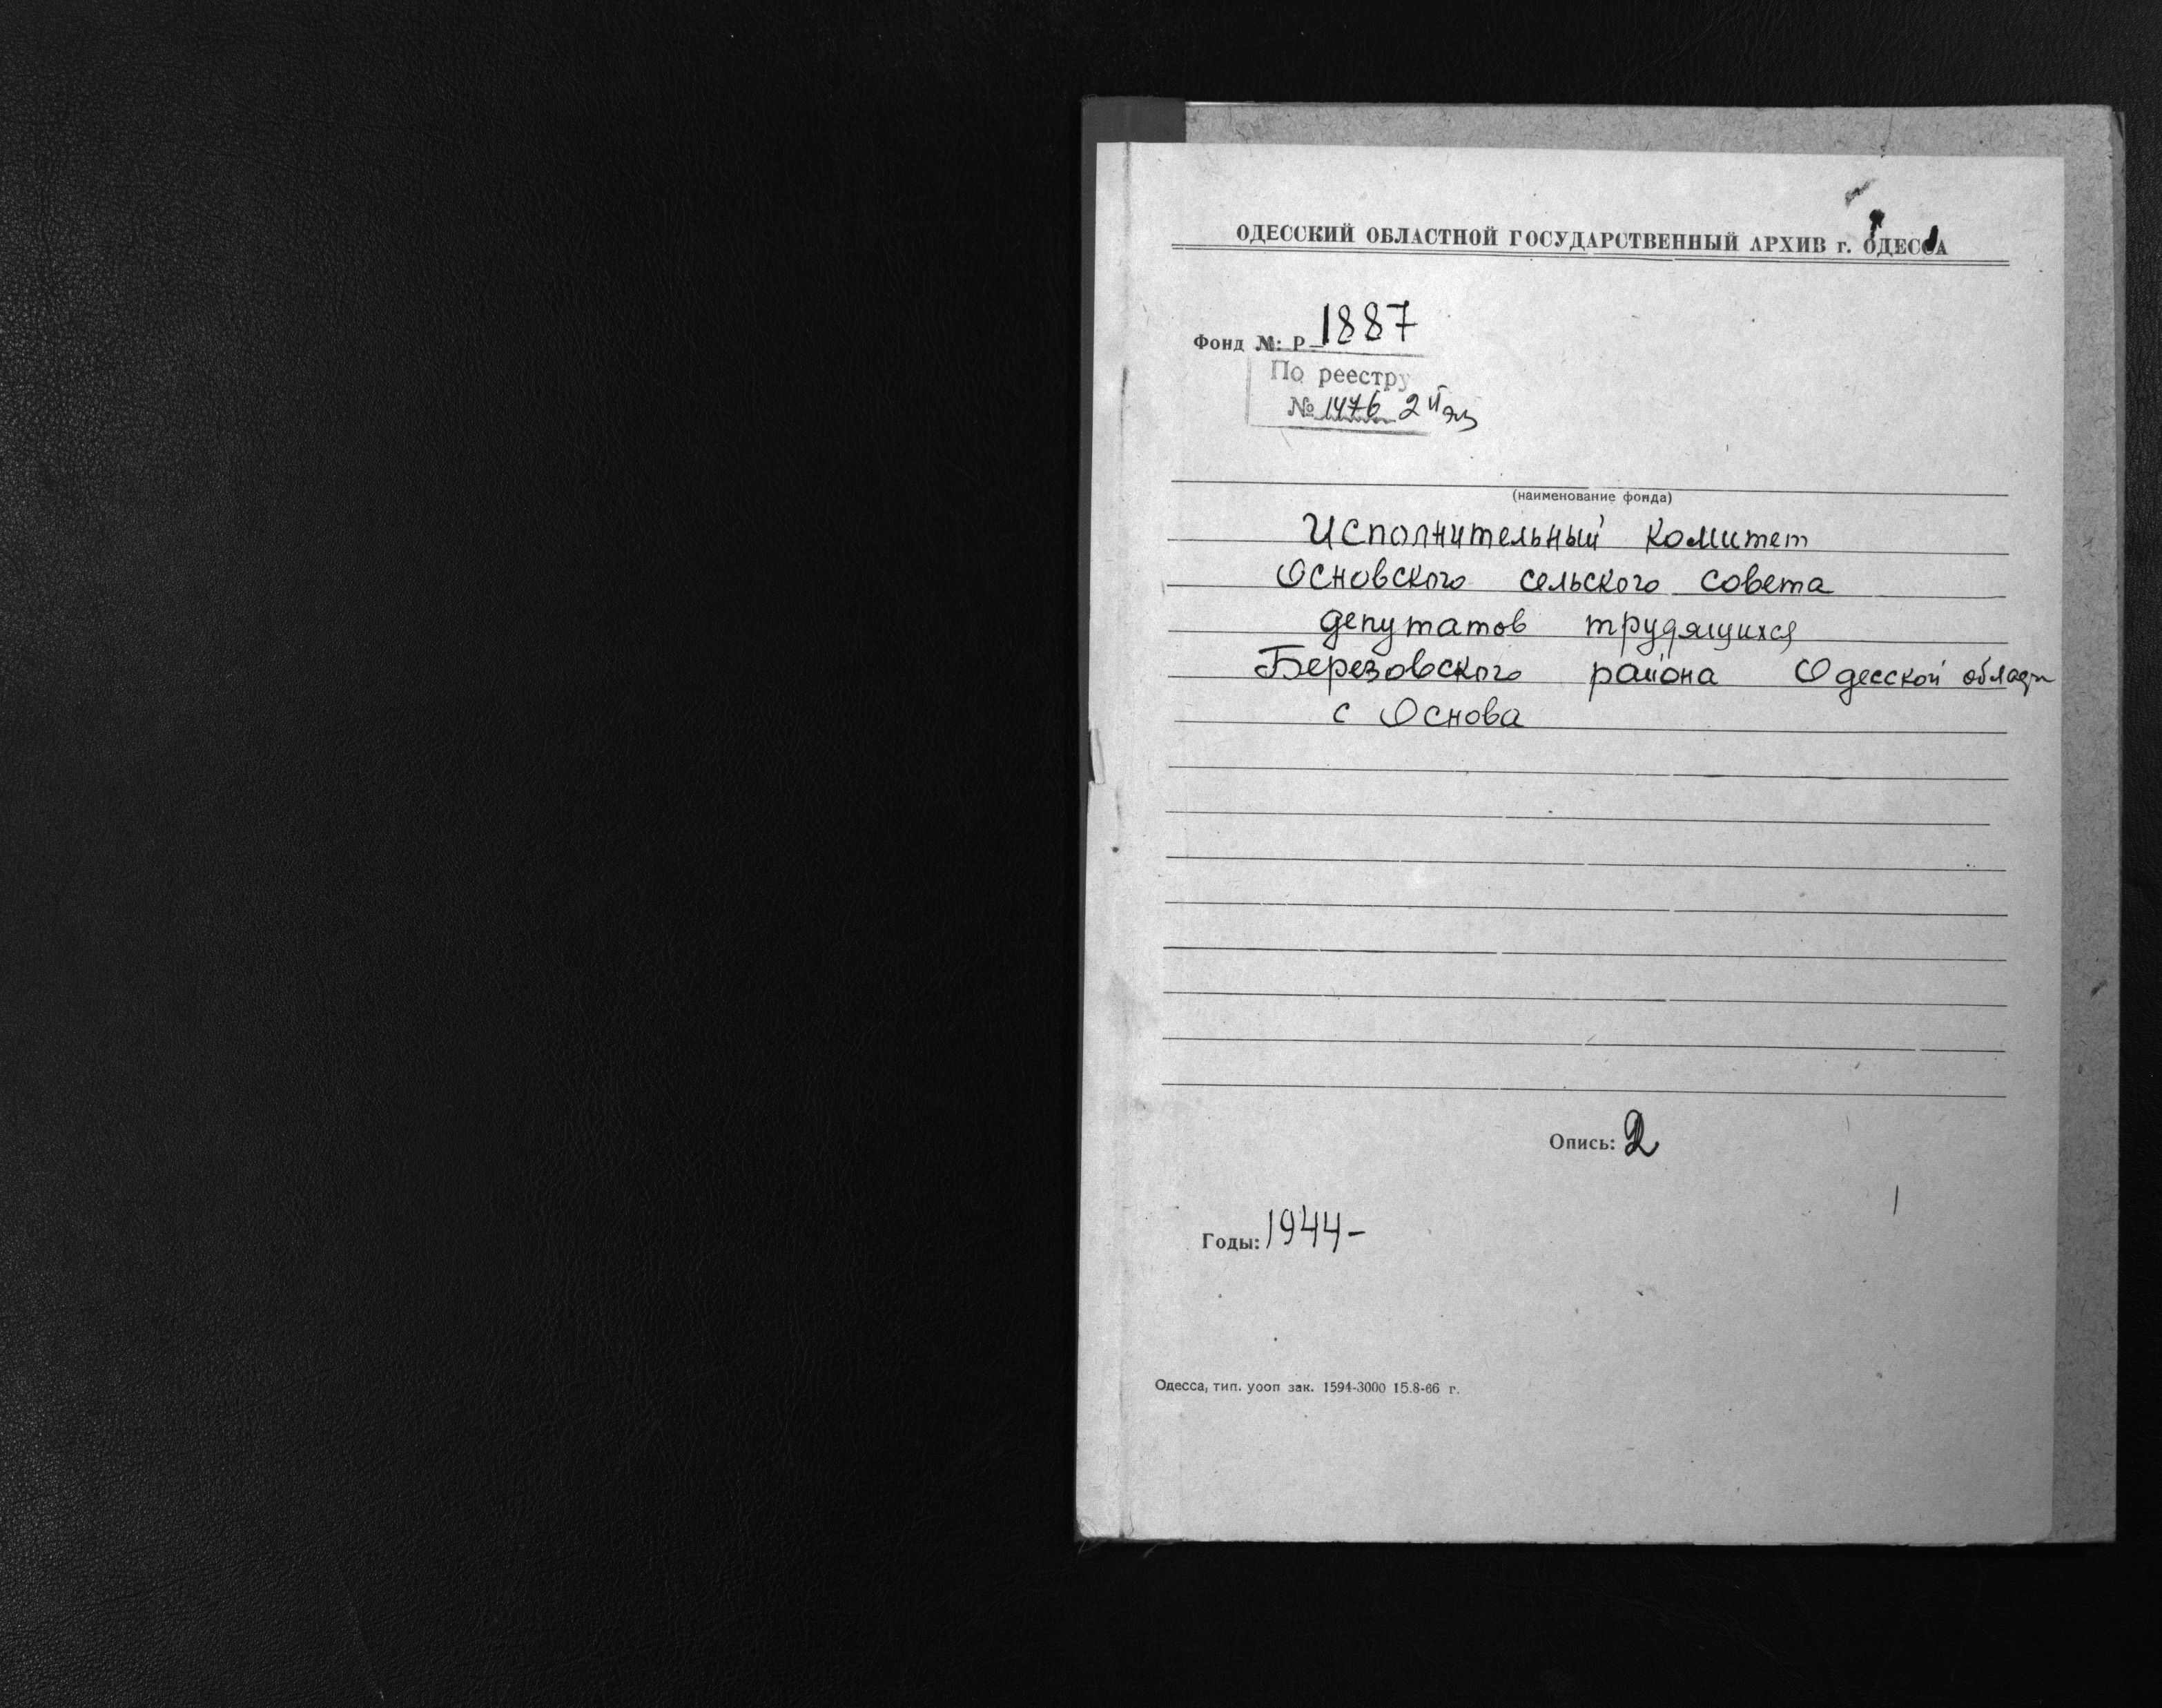 ОДЕССКИЙ ОБЛАСТНОЙ ГОСУДАРСТВЕННЫЙ АРХИВ г. ОДЕССА
Фонд №: Р—1887
По реестру
№ 1476 2 й экз
(наименование фонда)
Исполнительный комитет
Основского сельского совета
депутатов трудящихся
Березовского района Одесской области
с Основа
Опись: 2
Годы: 1944-
Одесса, тип. уооп зак. 1594-3000 15.8-66 г.